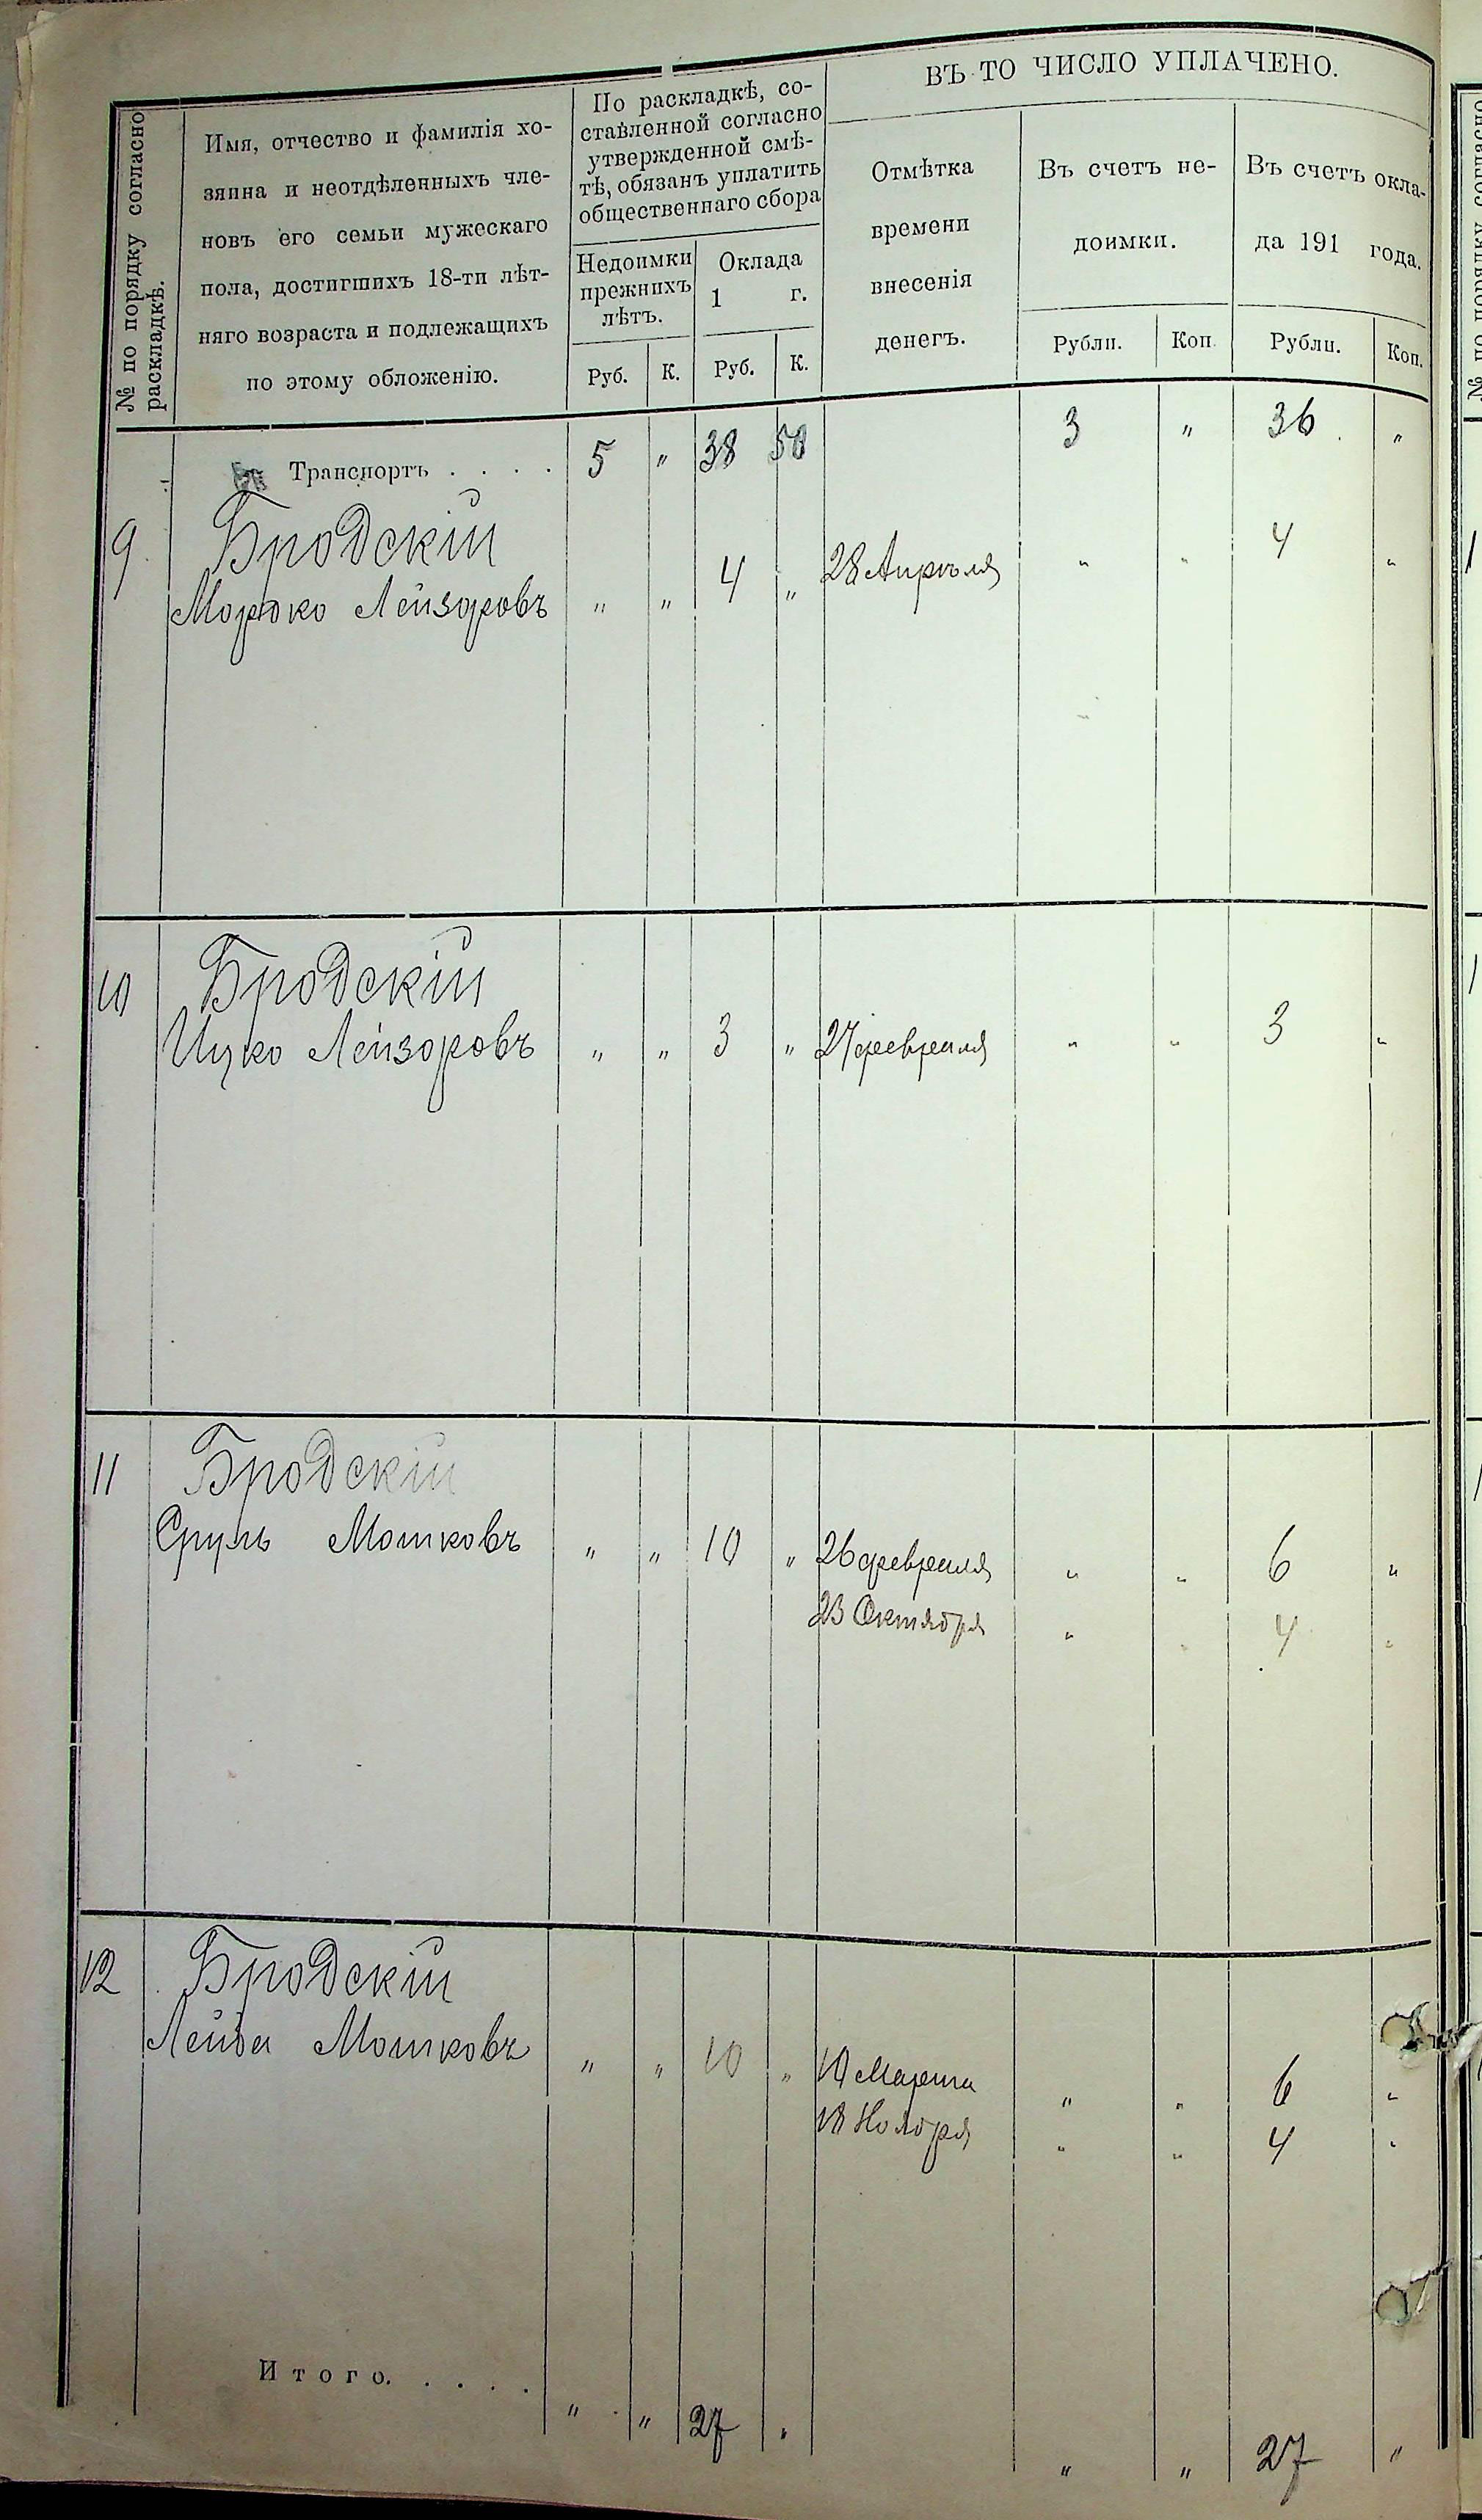 ВЪ ТО ЧИСЛО УПЛАЧЕНО.
№ по порядку согласно
раскладкѣ.
Имя, отчество и фамилія хо-
зяина и неотдѣленныхъ чле-
новъ его семьи мужескаго
пола, достигшихъ 18-ти лѣт-
няго возраста и подлежащихъ
по этому обложенію.
По раскладкѣ, со-
ставленной согласно
утвержденной смѣ-
тѣ, обязанъ уплатить
общественнаго сбора
Недоимки
прежнихъ
лѣтъ.
Оклада
1 г.
Отмѣтка
времени
внесенія
денегъ.
Въ счетъ не-
доимки.
Въ счетъ окла-
да 191 года.
Руб. К. Руб. К. Рубли. Коп. Рубли. Коп.
Транспортъ . . . . 5 " 38 50 3 " 36 "
9 Бродскій
Мордко Лейзоровъ " " 4 " 28 Апрѣля " " 4 "
10 Бродскій
Ицко Лейзоровъ " " 3 " 27 февраля " " 3 "
11 Бродскій
Сруль Мошковъ " " 10 " 26 февраля " " 6 "
23 Октября " " 4 "
12 Бродскій
Лейба Мошковъ " " 10 " 10 Марта " " 6 "
18 Ноября " " 4 "
Итого. . . . . " " 27 " " " 27 "